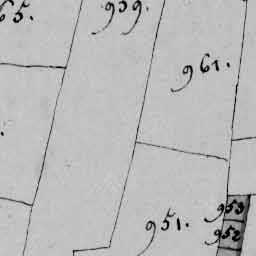 65.
959.
961.
953
951.
952